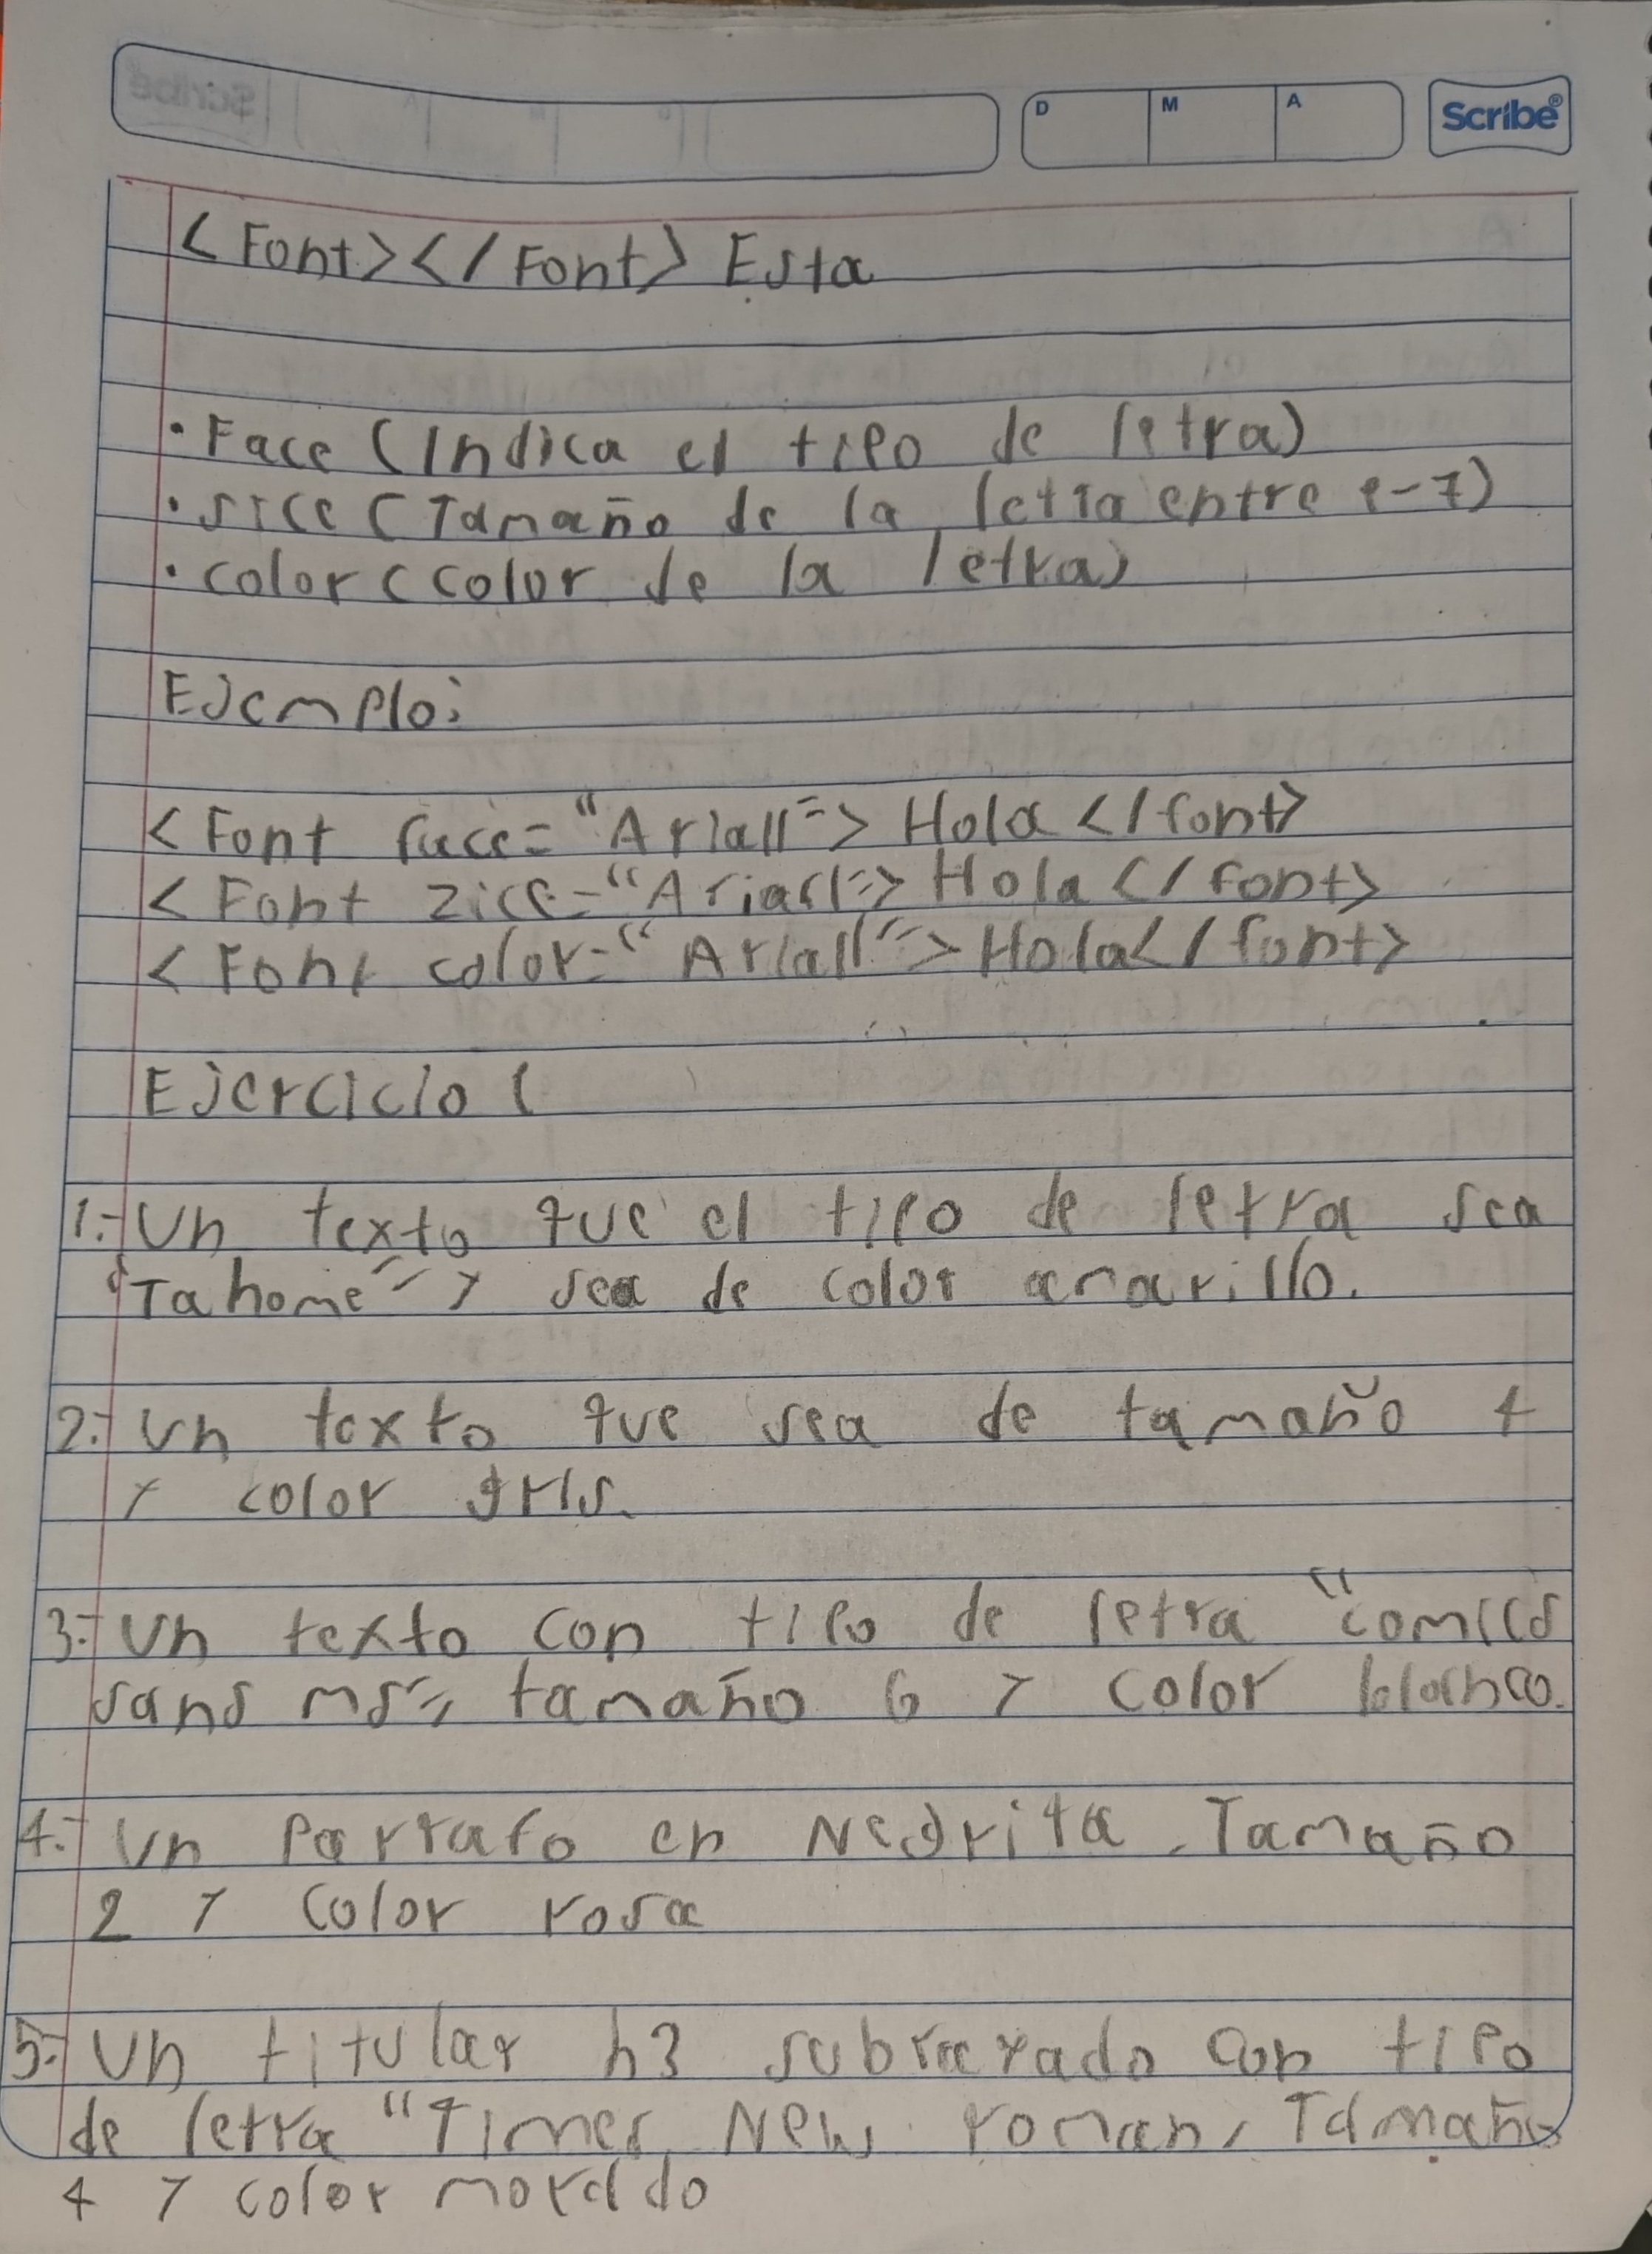 D M A Scribe®
<Font></Font> Esta
• Face (Indica el tipo de letra)
• sice (Tamaño de la letra entre 1-7)
• color (color de la letra)
Ejemplo:
<Font face="Ariall"> Hola </font>
<Font zice="Ariall"> Hola </font>
<Font color="Ariall"> Hola </font>
Ejercicio (
1.- Un texto que el tipo de letra sea
"Tahome" y sea de color amarillo.
2.- Un texto que sea de tamaño 4
y color gris.
3.- Un texto con tipo de letra "comics
sans ms", tamaño 6 y color blanco.
4.- Un Parrafo en Negrita, Tamaño
2 y color rosa
5.- Un titular h3 subrayado con tipo
de letra "Times New roman, Tamaño
4 y color morado